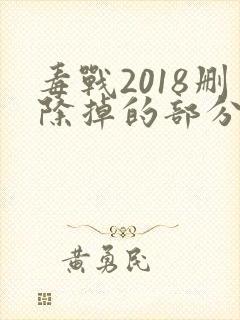 毒戰2018刪
除掉的部分
黃勇民